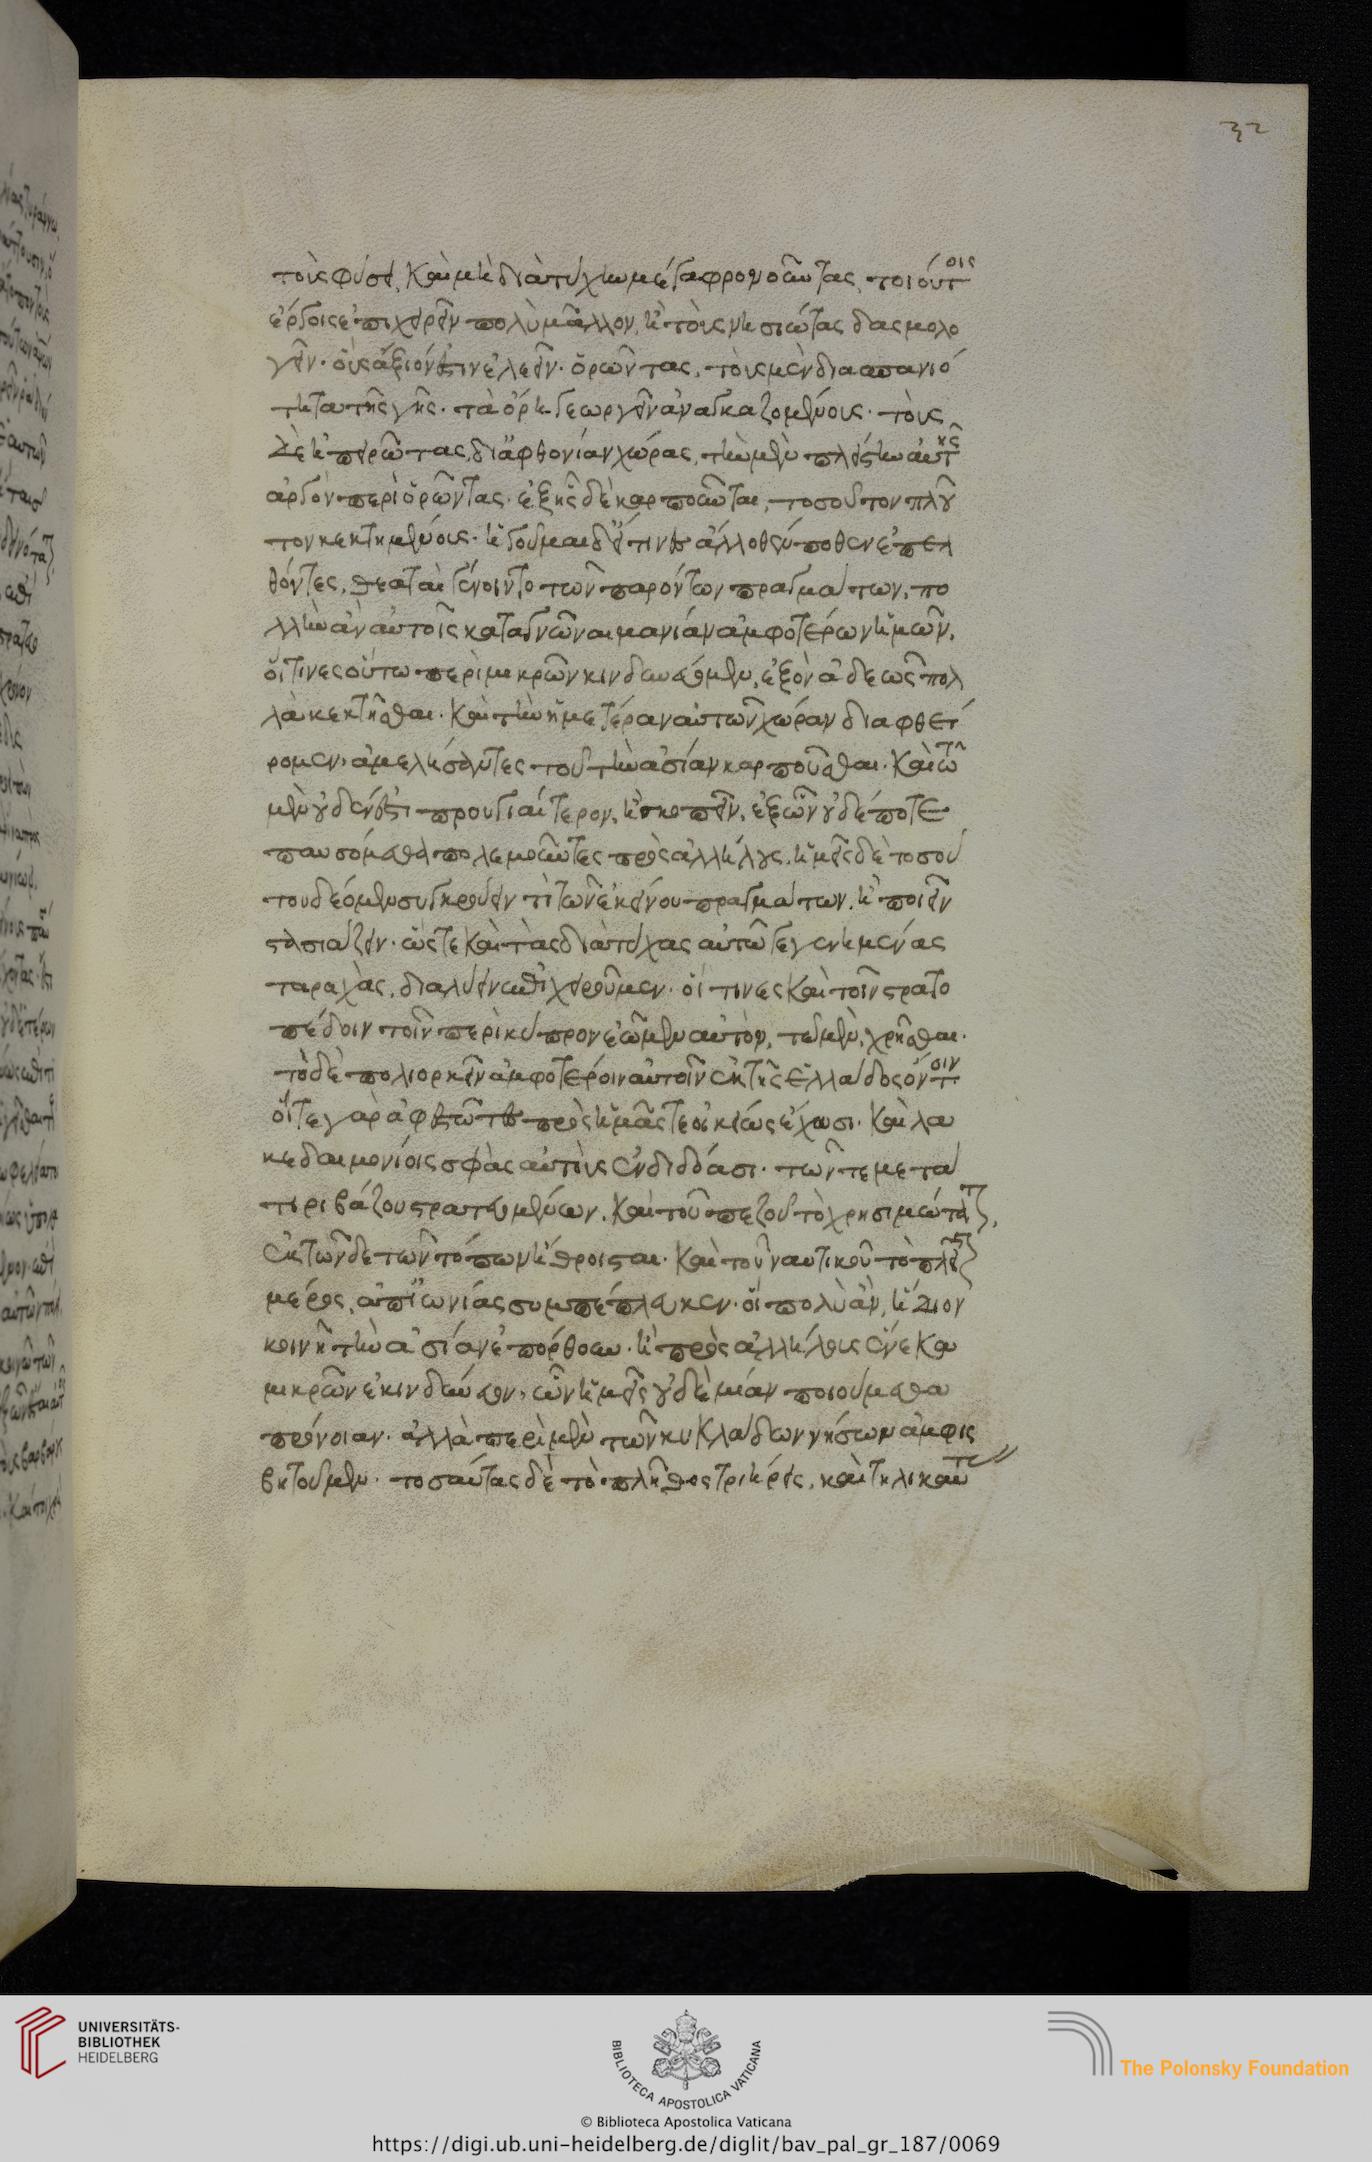 τοὺς φύσει, καὶ μὴ διὰ τύχην μέγα φρονοῦντας, τοιούτοις
ἔργοις ἐπιχειρεῖν πολὺ μᾶλλον, ἢ τοὺς νησιώτας δασμολο
γεῖν· οὓς ἄξιόν ἐστιν ἐλεεῖν· ὁρῶντας, τοὺς μὲν δια σπανιό
τητα τῆς γῆς· τὰ ὄρη γεωργεῖν ἀναγκαζομένους· τοὺς
δὲ ἠπειρώτας, δι' ἀφθονίαν χώρας, τὴν μὲν πλείστην αὐτῆς
ἀργὸν περιορῶντας· ἐξ ἧς δὲ καρποῦνται, τοσοῦτον πλοῦ
τον κεκτημένους· ἡγοῦμαι δ' εἴ τινες ἄλλοθέν ποθεν ἐπελ
θόντες, θεαταὶ γένοιντο τῶν παρόντων πραγμάτων, πο
λλὴν ἂν αὐτοῖς καταγνῶναι μανίαν ἀμφοτέρων ἡμῶν,
οἵτινες οὕτω περὶ μικρῶν κινδυνεύομεν, ἐξὸν ἀδεῶς πολ
λὰ κεκτῆσθαι· καὶ τὴν ἡμετέραν αὐτῶν χώραν διαφθεί
ρομεν, ἀμελήσαντες τοῦ τὴν ἀσίαν καρποῦσθαι· καὶ τῶ
μὲν οὐδέν ἐστι προυργιαίτερον, ἢ σκοπεῖν, ἐξ ὧν οὐδέποτε
παυσόμεθα πολεμοῦντες πρὸς ἀλλήλους. ἡμεῖς δὲ τοσού
του δέομεν συγκρούειν τὶ τῶν ἐκείνου πραγμάτων, ἢ ποιεῖν
στασιάζειν· ὥστε καὶ τὰς διὰ τύχας αὐτῶ γεγενημένας
ταραχὰς, διαλύειν ἐπιχειροῦμεν· οἵ τινες καὶ τοῖν στρατο
πέδοιν τοῖν περὶ κύπρον ἐῶμεν αὐτὸν, τῶ μὲν, χρῆσθαι·
τὸ δὲ πολιορκεῖν ἀμφοτέροιν αὐτοῖν ἐκ τῆς ἑλλάδος ὄντοιν
οἵ τε γὰρ ἀφεστῶτες πρὸς ἡμᾶς τε οἰκείως ἔχουσι· καὶ λα
κεδαιμονίοις σφᾶς αὐτοὺς ἐνδιδόασι· τῶν τε μετὰ
τιριβάζου στρατευομένων, καὶ τοῦ πεζοῦ τὸ χρησιμώτατον,
ἐκ τῶνδε τῶν τόπων ἤθροισται· καὶ τοῦ ναυτικοῦ τὸ πλεῖστον
μέρος, ἀπ' ἰωνίας συμπέπλευκεν· οἳ πολὺ ἂν, ἥδιον
κοινῆ τὴν ἀσίαν ἐπόρθουν· ἢ πρὸς ἀλλήλους ἕνεκα
μικρῶν ἐκινδύνευον, ὧν ἡμεῖς οὐδεμίαν ποιούμεθα
πρόνοιαν· ἀλλὰ περὶ μὲν τῶν κυκλάδων νήσων ἀμφισ
βητοῦμεν· τοσαύτας δὲ τὸ πλῆθος τριήρεις, καὶ τηλικαύτ
32
UNIVERSITÄTS-
BIBLIOTHEK
HEIDELBERG
BIBLIOTECA APOSTOLICA VATICANA
© Biblioteca Apostolica Vaticana
The Polonsky Foundation
https://digi.ub.uni-heidelberg.de/diglit/bav_pal_gr_187/0069